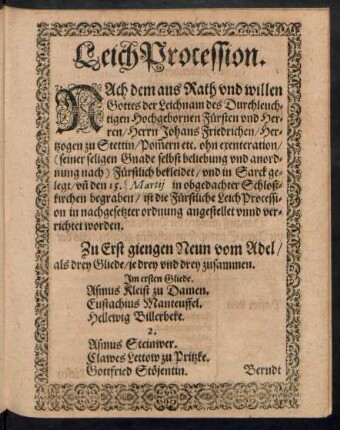 Leich Procession.
NAch dem aus Rath vnd willen
Gottes der Leichnam des Durchleuch-
tigen Hochgebornen Fürsten vnd Her-
ren/Herrn Johans Friedrichen/Her-
zogen zu Stettin/Pom̃ern etc. ohn exenteration/
(seiner seligen Gnade selbst beliebung vnd anord-
nung nach) Fürstlich bekleidet/vnd in Sarck ge-
legt/vñ den 15. Martij in obgedachter Schloß-
kirchen begraben/ist die Fürstliche Leich Processi-
on in nachgesetzter ordnung angestellet vnnd ver-
richtet worden.
Zu Erst giengen Neun vom Adel/
als drey Gliede/je drey vnd drey zusammen.
Im ersten Gliede.
Asmus Kleist zu Damen.
Eustachius Manteuffel.
Hellewig Billerbeke.
2.
Asmus Steinwer.
Clawes Lettow zu Pritzke.
Gottfried Stöjentin.
Berndt